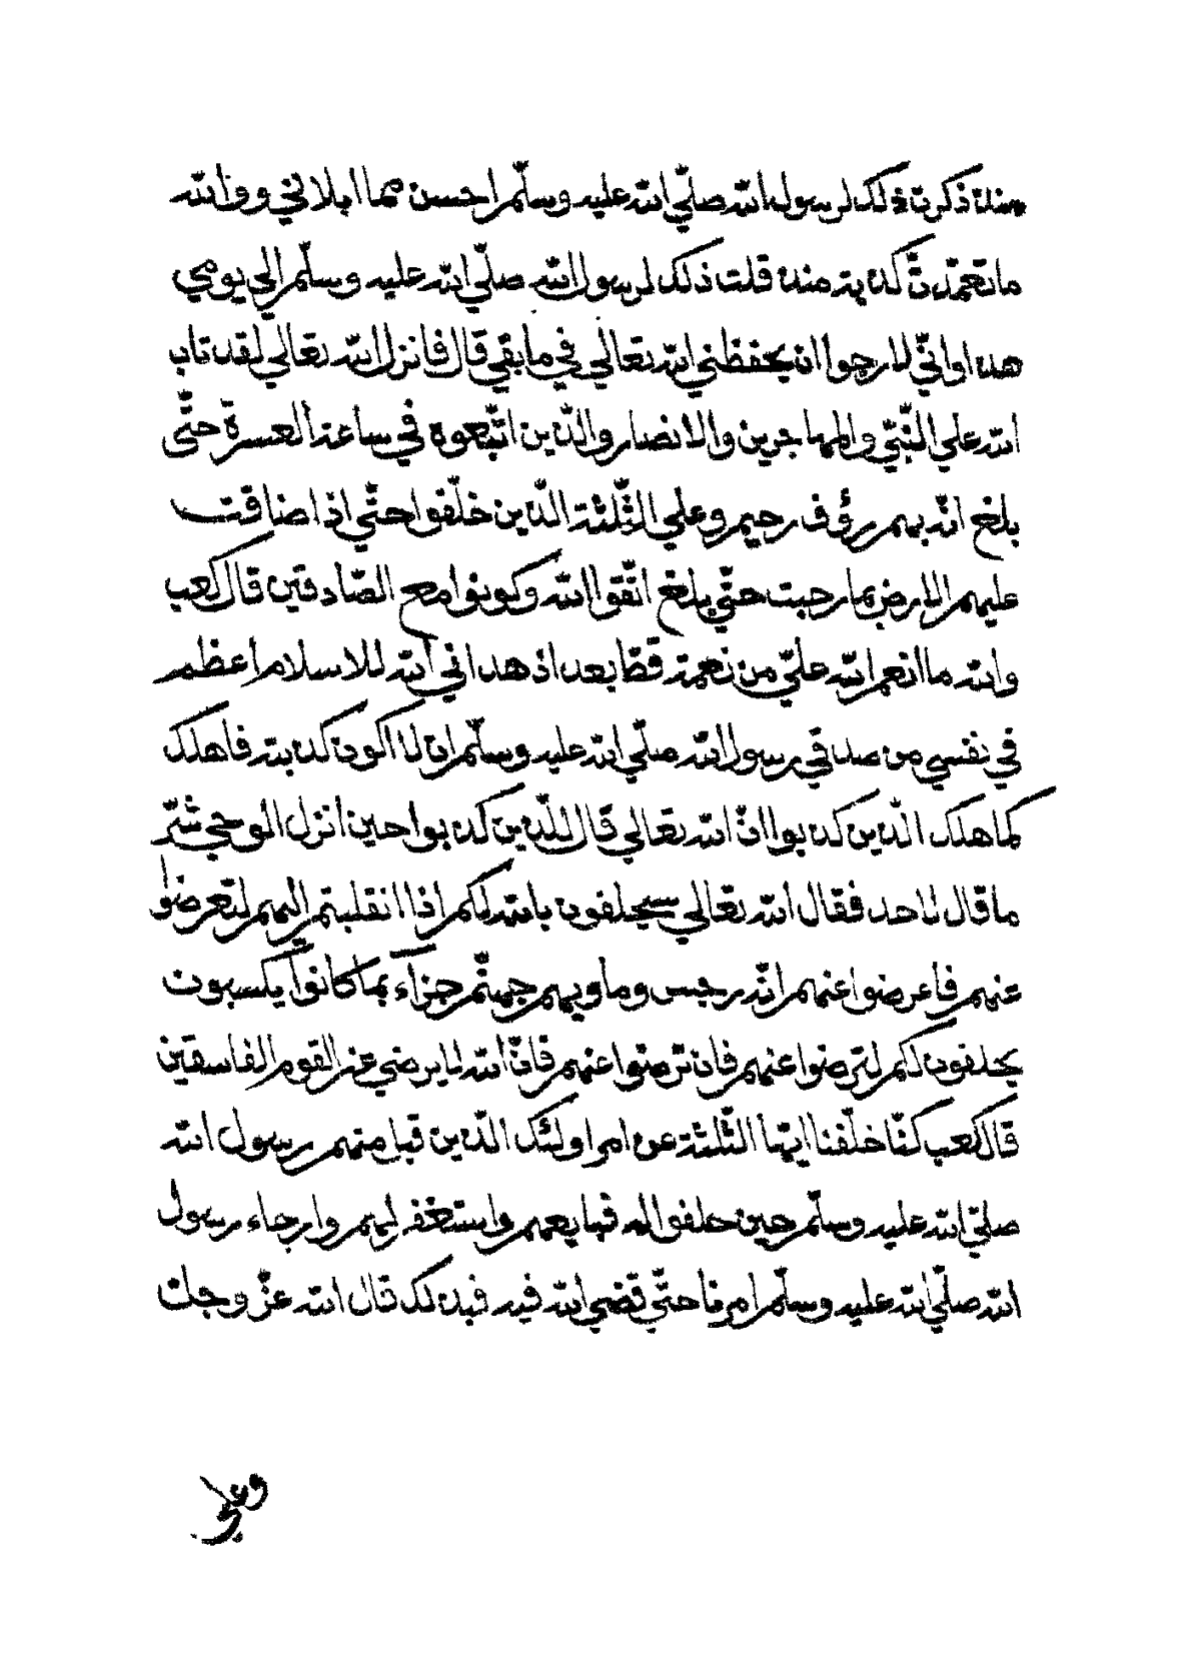 منذ ذكرت ذلك لرسول الله صلّي الله عليه وسلّم احسن مما ابلاني ووالله
ما تعمّدت كذبة منذ قلت ذلك لرسول الله صلّي الله عليه وسلّم الي يومي
هذا وانّي لارجوا ان يحفظني الله تعالي في ما بقي قال فانزل الله تعالي لقد تاب
الله علي النّبيّ والمهاجرين والانصار والّذين اتّبعوه في ساعة العسرة حتّي
بلغ انّه بهم رؤف رحيم وعلي الثّلثة الّذين خلّفوا حتّي اذا ضاقت
عليهم الارض بما رحبت حتّي بلغ اتّقوا الله وكونوا مع الصّادقين قال كعب
والله ما انعم الله عليّ من نعمة قطّ بعد اذ هداني الله للاسلام اعظم
في نفسي من صدقي رسول الله صلّي الله عليه وسلّم ان لا اكون كذبته فاهلك
كما هلك الّذين كذبوا انّ الله تعالي قال للّذين كذبوا حين انزل الوحي شرّ
ما قال لاحد فقال الله تعالي سيحلفون بالله لكم اذا انقلبتم اليهم لتعرضوا
عنهم فاعرضوا عنهم انّهم رجس وماويهم جهنّم جزآء بما كانوا يكسبون
يحلفون لكم لترضوا عنهم فان ترضوا عنهم فانّ الله لا يرضي عن القوم الفاسقين
قال كعب كنّا خلّفنا ايّها الثّلثة عن امر اولئك الّذين قبل منهم رسول الله
صلّي الله عليه وسلّم حين حلفوا له فبايعهم واستغفر لهم وارجاء رسول
الله صلّي الله عليه وسلّم امرنا حتّي قضي الله فيه فبذلك قال الله عزّ وجلّ
وعلي